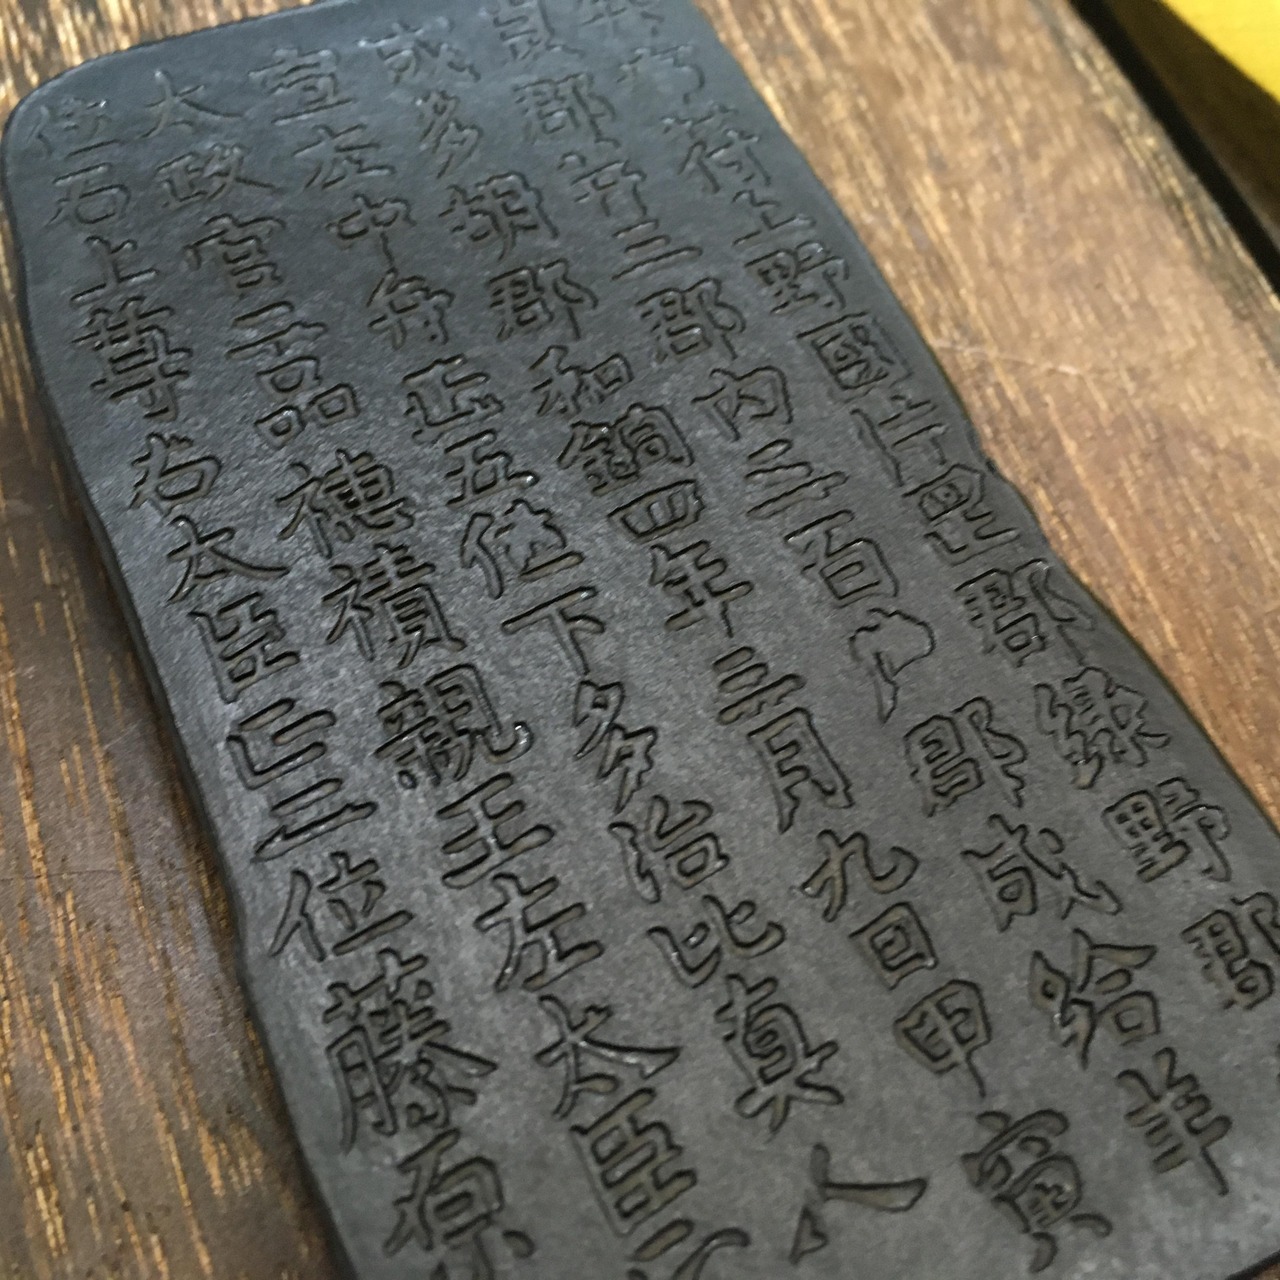 弁官符上野國片罡郡緑野郡
良郡并三郡内三百戸郡成給羊
成多胡郡和銅四年三月九日甲寅
宣左中弁正五位下多治比真人
太政官二品穂積親王左太臣正
位石上尊右太臣正二位藤原